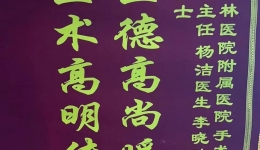 林医院附属医院手
主任 杨洁医生 李晓
士
德高尚暖
术高明